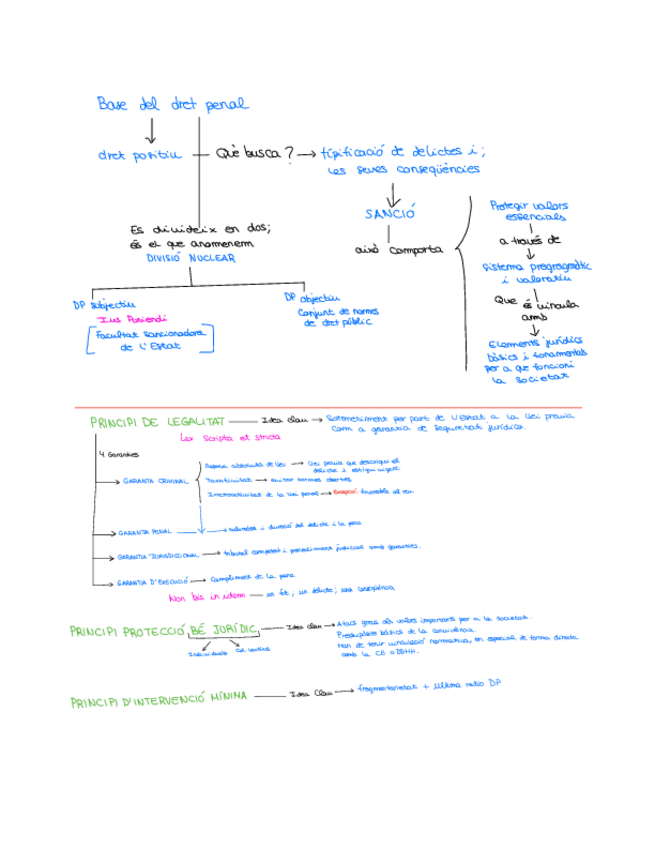 Base del dret penal
dret positiu
Què busca?
tipificació de delictes i;
les seves conseqüències
SANCIÓ
això comporta
Protegir valors
essencials
a través de
Sistema pragmàtic
i valoratiu
Que és vincula
amb
Elements jurídics
bàsics i fonamentals
per a que funcioni
la societat
Es divideix en dos;
és el que anomenem
DIVISIÓ NUCLEAR
DP subjectiu
Ius Puniendi
Facultat sancionadora
de l'Estat
DP objectiu
Conjunt de normes
de dret públic
PRINCIPI DE LEGALITAT
Idea clau
Sotmetiment per part de l'Estat a la llei prèvia
com a garantia de seguretat jurídica.
Lex scripta et stricta
4 Garanties
GARANTIA CRIMINAL
Reserva absoluta de llei
Llei prèvia que descrigui el
delicte i estigui vigent
Taxativitat
evitar normes obertes
Irretroactivitat de la llei penal
Excepció favorable al reu
GARANTIA PENAL
naturalesa i duració del delicte i la pena
GARANTIA JURISDICCIONAL
tribunal competent i procediment judicial amb garanties.
GARANTIA D'EXECUCIÓ
Compliment de la pena.
Non bis in idem
un fet; un delicte; una conseqüència
PRINCIPI PROTECCIÓ BÉ JURÍDIC
Individuals
Col·lectius
Idea clau
Atacs greus als valors importants per a la societat.
Pressupòsits bàsics de la convivència.
Han de tenir vinculació normativa, en especial de forma directa
amb la CE = DDHH.
PRINCIPI D'INTERVENCIÓ MÍNIMA
Idea Clau
fragmentarietat + última ratio DP